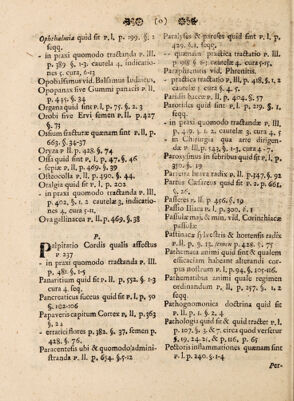 (o)
Ophthalmia quid sit P. I. p. 299. §. 1
seqq.
- in praxi quomodo tractanda P. III.
p. 389 §. 1-3. cautela 4, indicatio-
nes 5, cura, 6-13
Opobalsamum vid. Balsamus Iudaicus,
Opopanax sive Gummi panacis P. II.
p. 435. §. 34
Organa quid sint P. I, p. 75. §. 2. 3
Orobi sive Ervi semen P. II. p. 427
§. 73
Ossium fracturæ quænam sint P. II, p.
663. §. 34-37
Oryza P. II p. 428. §. 74
Ossa quid sint P. I, p. 47. §. 46
- sepiæ P. II, p. 469. §. 39
Osteocolla P. II, p. 490. §. 44
Otalgia quid sit P. I, p. 202
- in praxi quomodo tractanda P. III.
p. 402, §. 1. 2 cautelæ 3, indicatio-
nes 4, cura 5-11,
Ova gallinacea P. II, p. 469. §. 38
P.
Palpitatio Cordis qualis affectus
P. 237
- in praxi quomodo tractanda P. III.
p. 481. §. 1-5
Panaritium quid sit P. II. p. 552. §. 1-3
cura 4. seq.
Pancreaticus succus quid sit P. I, p. 50
§. 102-106
Papaveris capitum Cortex P. II, p. 363
§. 24
- erratici flores p. 382. §. 37, semen p.
428. §. 76.
Paracentesis ubi & quomodo admini-
stranda P. II. p. 654. §. 5-12
Paralyses & pareses quid sint P. I, p.
429. 62, seqq.
practica tractatio P. III.
p. cautelæ 4. cura 5-15.
Paraphrenitis vid. Phrenitis.
- practica tractatio P. III, p. 418, §. 1, 2
cautela 3, cura, §. 4.
Paridis baccæ P. II, p. 404. §. 57
Parotides quid sint P. I, p. 219, §. 1.
seq.
- in praxi quomodo tractandæ P. III,
p. 419. §. 1. 2, cautelæ 3, cura 4, 5
- in Chirurgia qua arte dirigen-
dæ P. III, p. 143, §. 1-3, cura 4-7.
Paroxysmus in febribus quid sit P. I, p.
350. §. 19
Pareira brava radix P. II, p. 347. §. 92
Partus Cæsareus quid sit P. 2, p. 661.
§. 26.
Passeres P. II. p. 456. §. 19
Passio Iliaca P. I, p. 300, §. 1
Passulæ maj. & min. vid. Corinthiacæ
passulæ
Pastinacæ sylvestris & hortensis radix
P. II. p. semen p. 428. §. 75
Pathemata animi quid sint & qualem
efficaciam habeant alterandi cor-
pus nostrum P. I, p. 94. §. 105-116.
Pathematibus animi quale regimen
ordinandum P. II, p. 257. §. 1, 2
seqq.
Pathognomonica doctrina quid sit
P. II, p. 1. §. 2, 4
Pathologia quid sit & quid tractet P. I,
p. 107. §. 3. & 7. circa quod versetur
§. 19. 24-21, & p. 116, p. 65
Pectoris inflammationes quænam sint
P. I p. 240. §. 1-4
Per-